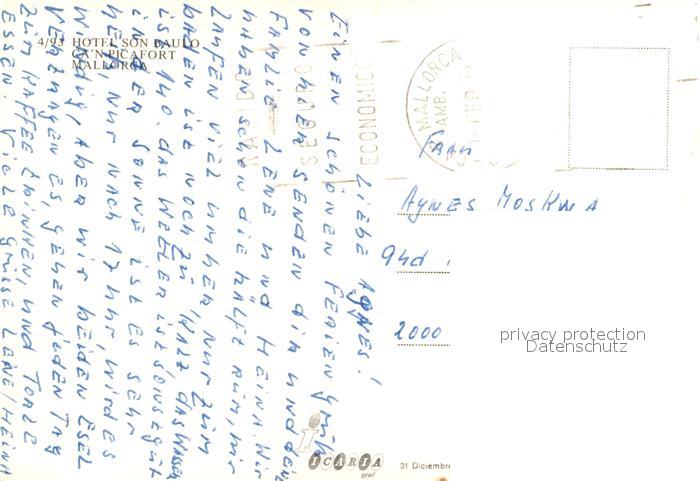 4/93 HOTEL SON BAULO
CA'N PICAFORT
MALLORCA
LIEBE AGNES!
EINEN SCHÖNEN FERIEN GRUß
VON HIER SENDEN DIR UND DEN
FAMILIE LENE UND HEINA. WIR
HABEN SCHON DIE HÄLFT RUM, WIR
LAUFEN VIEL UMHER, NUR ZUM
BADEN IST NOCH ZU KALT DAS WASSER
IST 140. DAS WETTER IST SONST GUT
IN DER SONNE IST ES SEHR
HEIß, NUR NACH 17 UHR, WIRD ES
WINDIG, ABER WIR BEIDEN ESEL
VERTRAGEN ES, GEHEN JEDEN TAG
ZUM KAFFEE TRINKEN, UND TORTE
ESSEN. VIELE GRÜSSE LENE/HEINA
SEGURO
ECONOMICO
MALLORCA
AMB.
FRAU
AGNES MOSKWA
2000
privacy protection
Datenschutz
ICARIA
graf
31 Diciembre